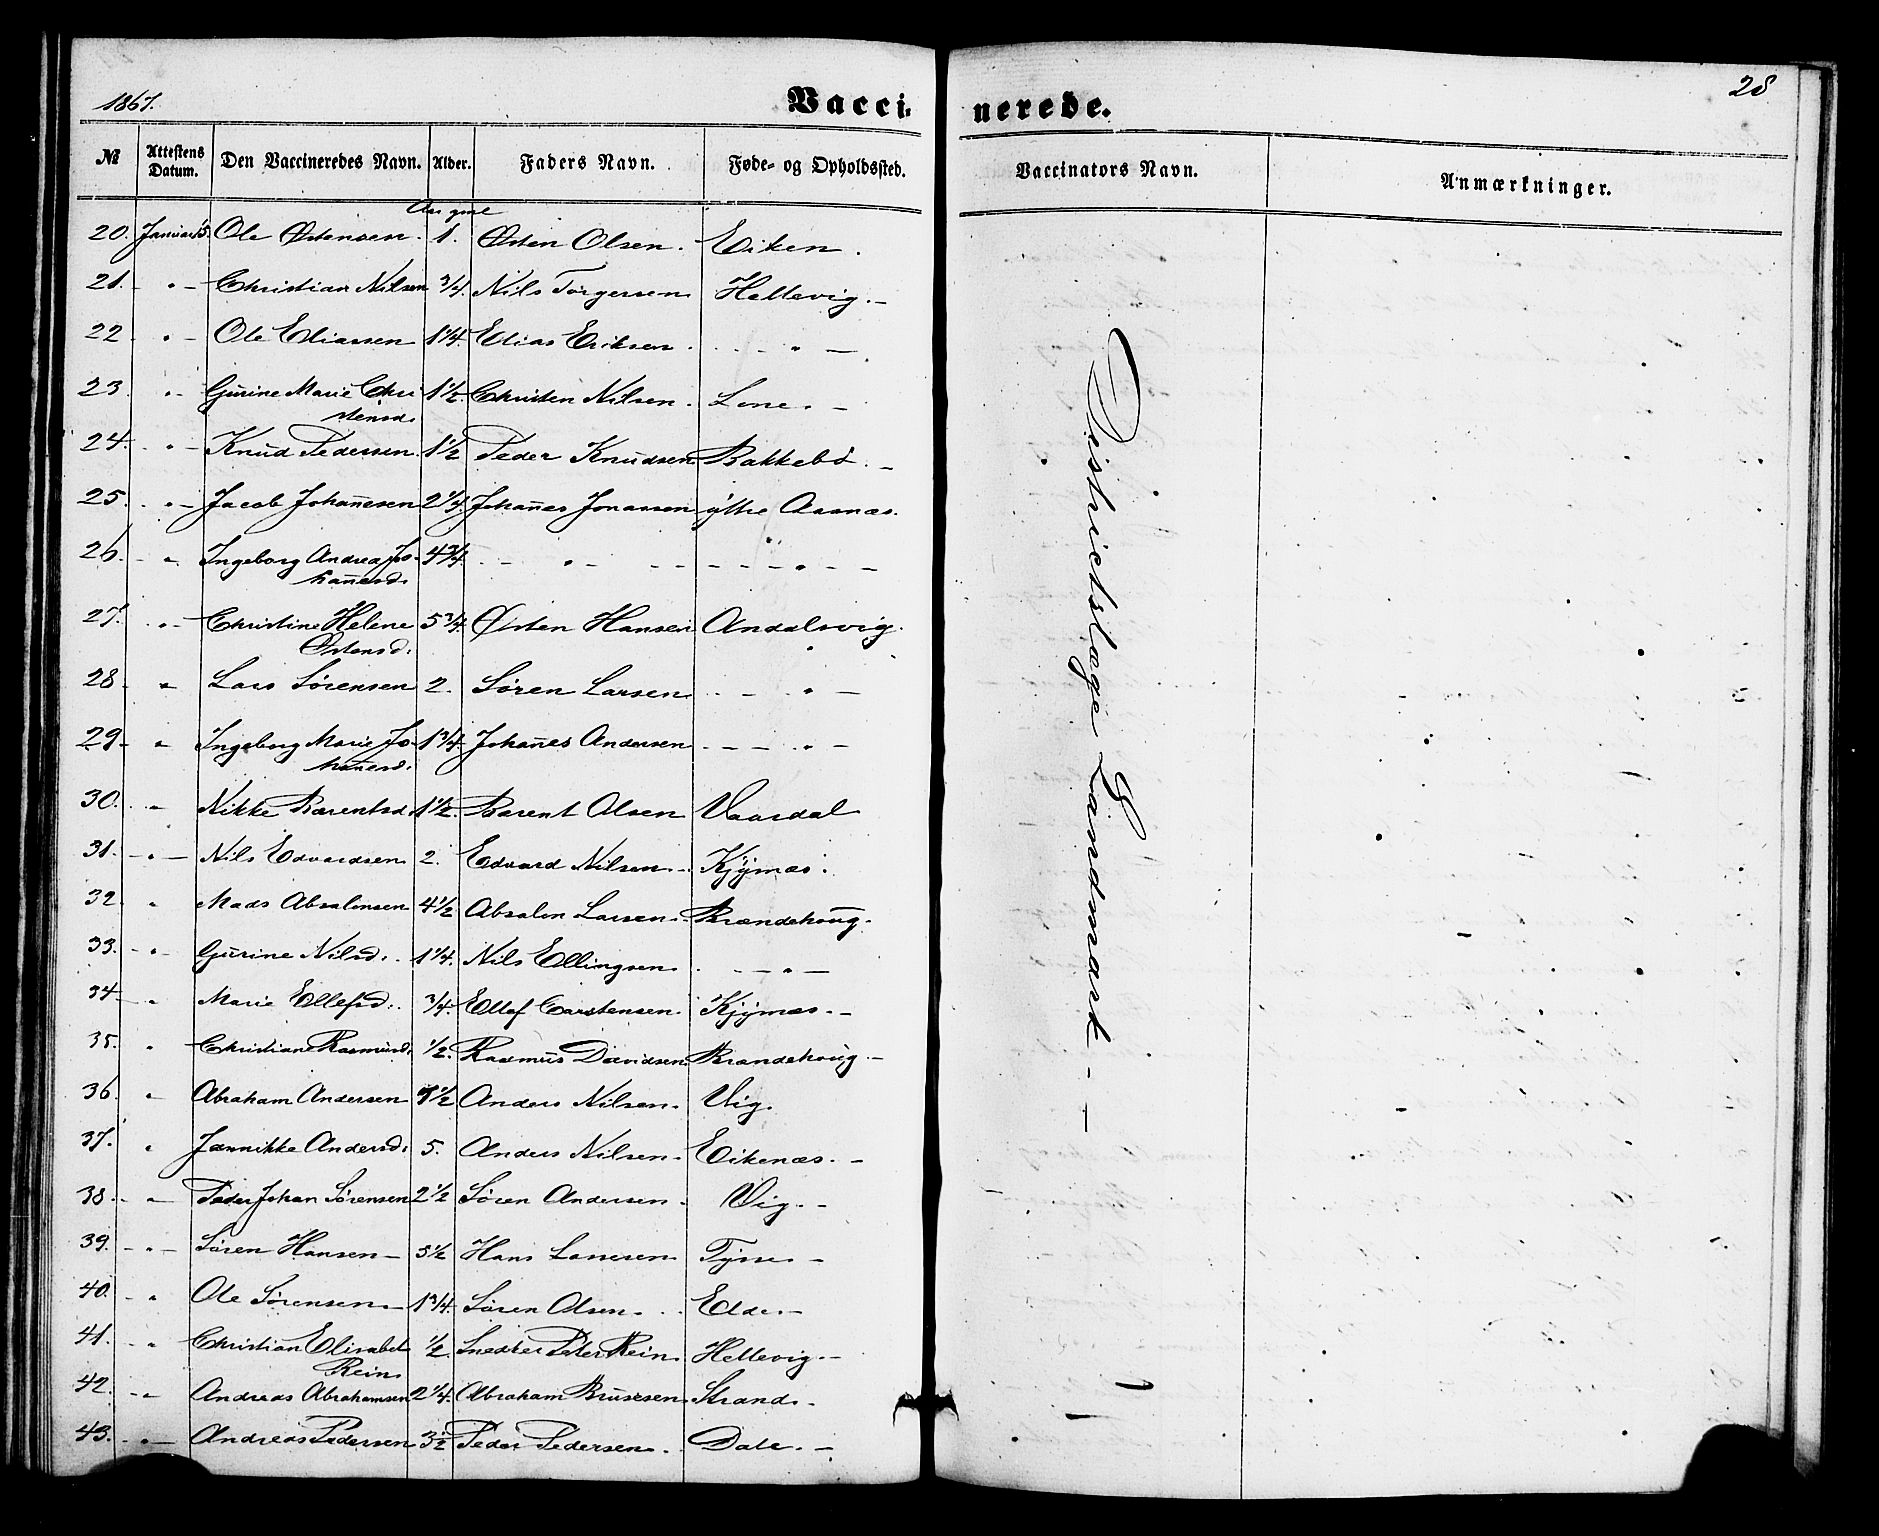 1867. Vaccinerede. 28
№ Attestens Datum. Den Vaccineredes Navn. Alder. Faders Navn. Føde- og Opholdssted. Vaccinators Navn. Anmærkninger.
20. Januar 5. Ole Østensen. 1. Østen Olsen. Eiken.
21. - " - Christian Nilsen 3/4. Nils Torgersen Hellevig. -
22 " - Ole Eliassen 1 1/4. Elias Eriksen. - " -
23. " - Gurine Marie Chri 1 1/2. Christen Nilsen. Lone. -
stensd.
24. - " - Knud Pedersen. 1 1/2 Peder Knudsen Bakkebø. -
25. " - Jacob Johan̄esen 2 1/4. Johan̄es Jonassen ytre Aasnæs.
26. - " Ingeborg Andrea Jo- 4 3/4. - " - - - " - -
han̄esd.
27. " - Christine Helene 5 3/4. Østen Hansen Andalsvig.
Østensd.
28 - " Lars Sørensen 2. Søren Larsen - " -
29. - " Ingeborg Marie Jo- 1 3/4. Johan̄es Andersen - - - " -
han̄esd.
30. " - Nikke Barentsd. 1 1/2. Barent Olsen Vaardal
31. - " - Nils Edvardsen 2. Edvard Nilsen. - Kjýmæs.
32 " Mads Absalonsen 4 1/2 Absalon Larsen. Brændehoug.
33. - " - Gurine Nilsd. 1 1/4. Nils Ellingsen. - - " -
34 " Marie Ellefsd. 3/4. Ellef Carstensen. Kjýmæs. -
35. " Christiane Rasmusd. 1/2. Rasmus Davidsen Brandehoug. -
36. " Abraham Andersen 1/2 Anders Nilsen. Vig.
37. " Jannikke Andersd. 5. Anders Nilsen. Eikenæs. -
38. - " Peder Johan Sørensen 2 1/2 Søren Andersen. Vig. -
39. - " - Søren Hansen - 5 1/2 Hans Lassesen Tysse. -
40. " Ole Sørensen. - 1 3/4. Søren Olsen. Elde. -
41. " Christian Elisabet 1/2. Snedker Peter Rein. Hellevig. -
Rein.
42. - " Andreas Abrahamsen 2 1/4. Abraham Brusesen. Strand.
43. - " - Andreas Pedersen 3 1/2 Peder Pedersen. Dale. -
Districtslæge Landmark - -